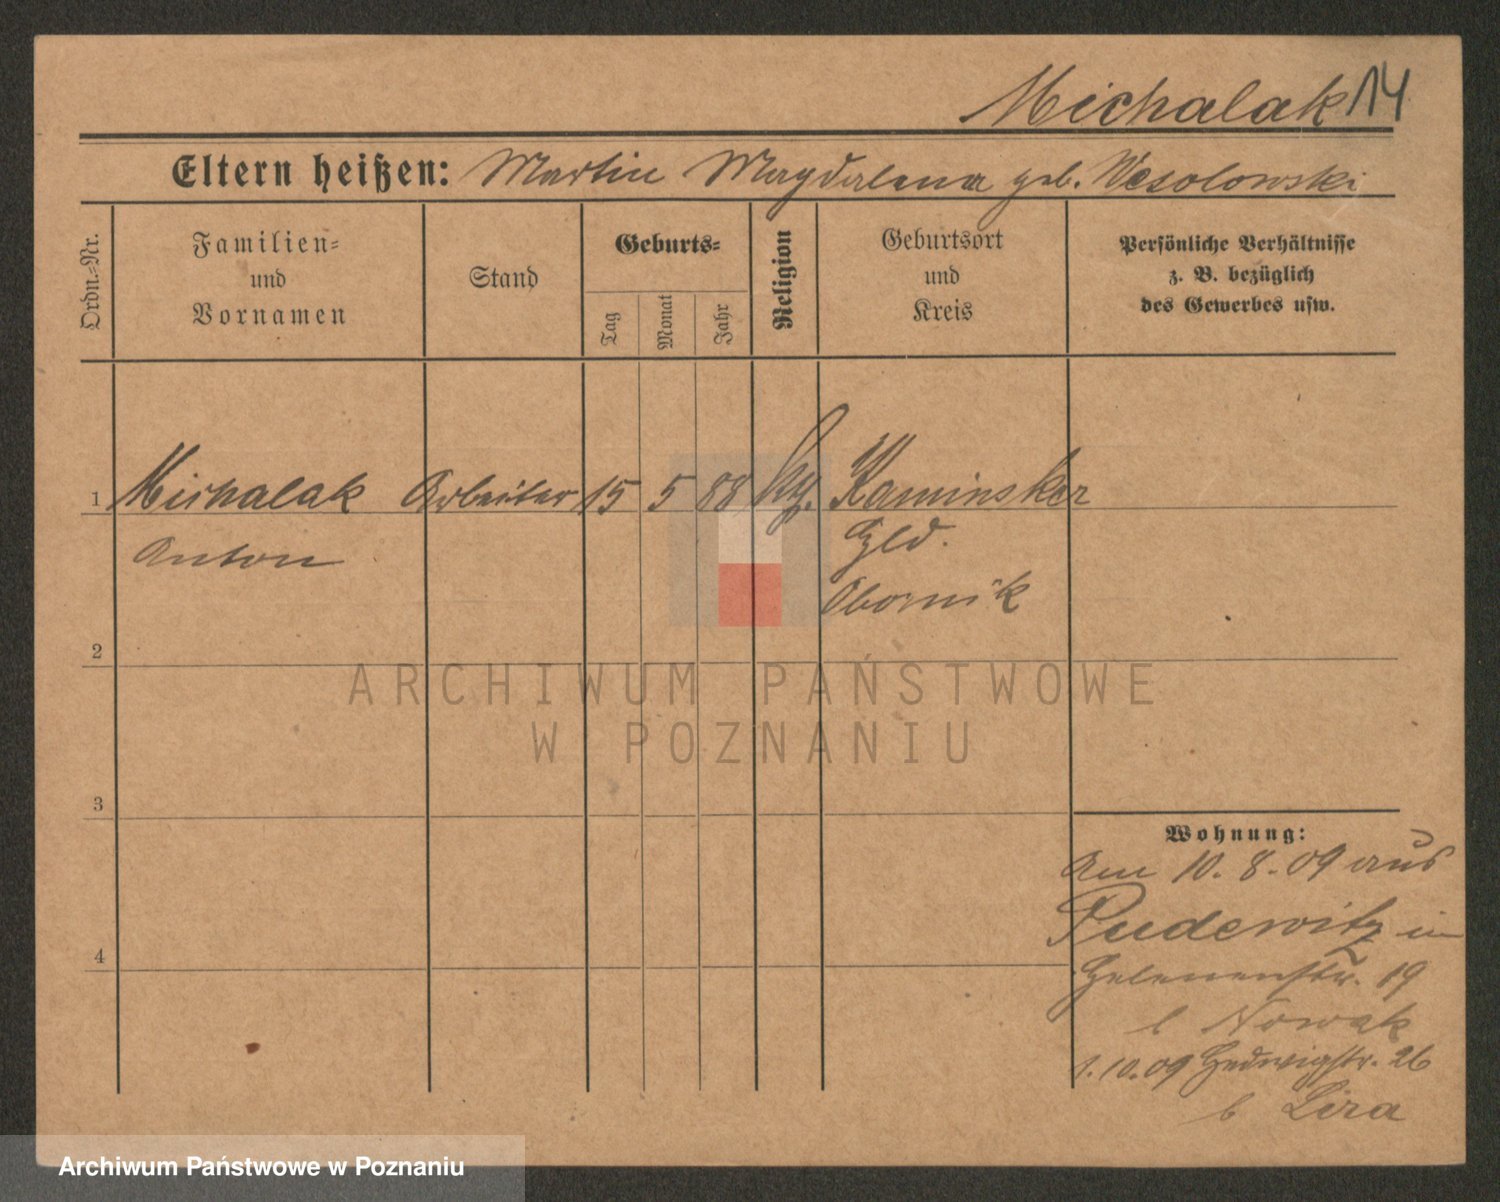 Michalak 14
Eltern heißen: Martin Magdalena geb. Wesolowski
Ordn.=Nr.
Familien=
und
Vornamen
Stand
Geburts=
Tag
Monat
Jahr
Religion
Geburtsort
und
Kreis
Persönliche Verhältnisse
z. B. bezüglich
des Gewerbes usw.
1 Michalak Arbeiter 15 5 88 Kaminsker
Anton
Hld.
Obornik
2
ARCHIWUM PAŃSTWOWE
W POZNANIU
3
Wohnung:
Am 10.8.09 aus
Pudewitz in
4
Helenenstr. 19
b Nowak
1.10.09 Hedwigstr. 26
b Lira
Archiwum Państwowe w Poznaniu